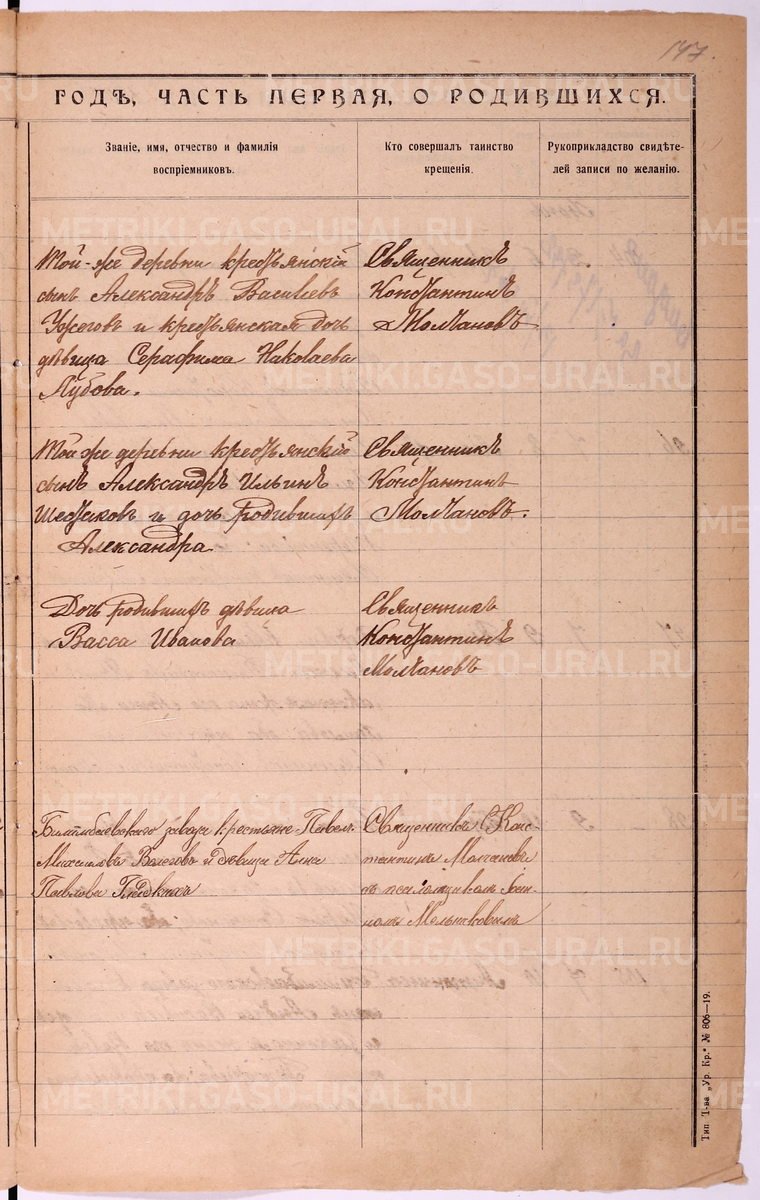 147.
ГОДЪ, ЧАСТЬ ПЕРВАЯ, О РОДИВШИХСЯ.
Званіе, имя, отчество и фамилія
воспріемниковъ.
Кто совершалъ таинство
крещенія.
Рукоприкладство свидѣте-
лей записи по желанію.
Той-же деревни крестьянскій
сынъ Александръ Васильевъ
Ужеговъ и крестьянская дочь
дѣвица Серафима Николаева
Лубова.
Священникъ
Константинъ
Молчановъ
Той же деревни крестьянскій
сынъ Александръ Ильинъ
Шестаковъ и дочь родившихъ
Александра
Священникъ
Константинъ
Молчановъ.
Дочь родившихъ дѣвица
Васса Иванова
Священникъ
Константинъ
Молчановъ
Билимбаевского завода крестьяне Павелъ
Михаиловъ Волеговъ и дѣвица Анна
Павлова
Священникъ Конс-
тантинъ Молчановъ
съ псаломщикомъ
Мельниковымъ
Тип. Т-ва „Ур. Кр.“ № 806—19.
METRIKI.GASO-URAL.RU